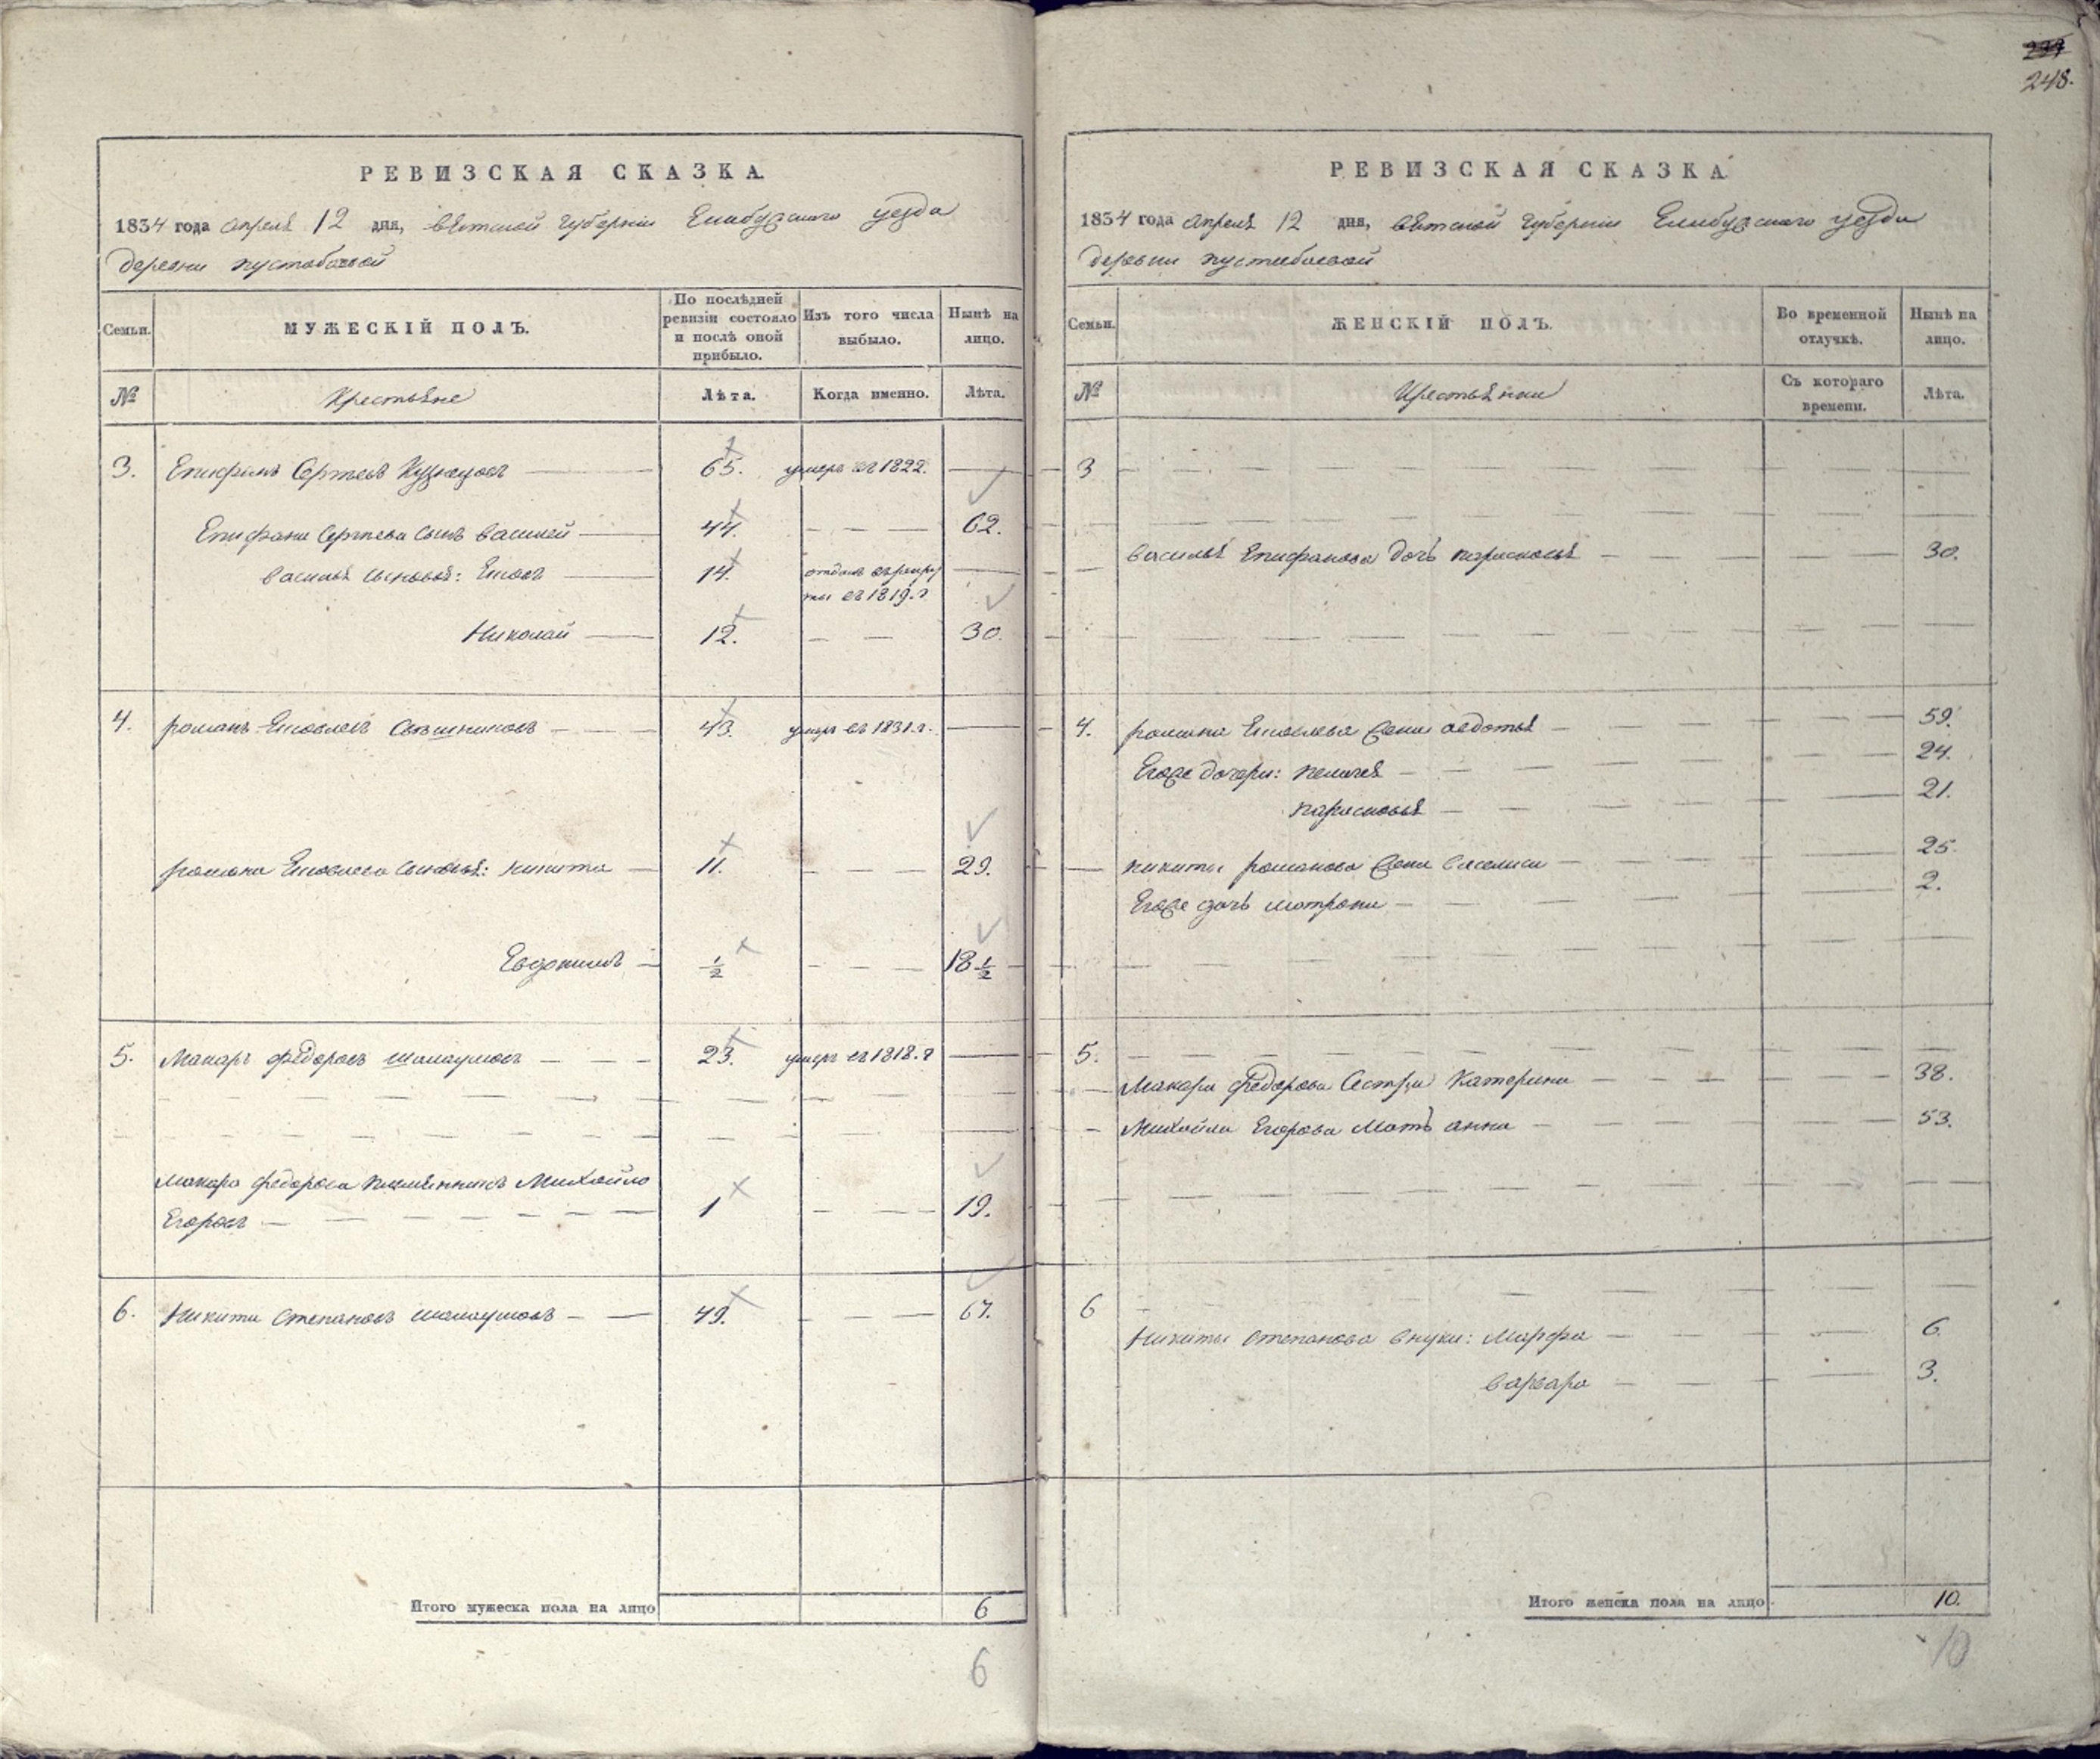 239
248.
РЕВИЗСКАЯ СКАЗКА.
1834 года апреля 12 дня, вятской губернiи Елабужского уезда
деревни пустобаевой
Семьи. МУЖЕСКІЙ ПОЛЪ. По послѣдней ревизіи состояло и послѣ оной прибыло. Изъ того числа выбыло. Нынѣ на лицо.
№ Крестьяне Лѣта. Когда именно. Лѣта.
3. Епифанъ Сергѣевъ Кузнецовъ 65. умеръ въ 1822.
Епифана Сергѣева сынъ василей 44. 62.
василья сыновья: Яковъ 14. отданъ въ рекру
ты въ 1819. г
Николай 12. 30.
4. романъ Яковлевъ 43. умеръ въ 1831. г.
романа Яковлева сыновья: никита 11. 29.
Евдокимъ 1/2 18 1/2
5. Макаръ федоровъ шалаумовъ 23. умеръ въ 1818. г
макара федорова племянникъ Михайло
Егоровъ 1 19.
6. Никита степановъ шалаумовъ 49. 67.
Итого мужеска пола на лицо 6
6
РЕВИЗСКАЯ СКАЗКА.
1834 года апреля 12 дня, вятской губернiи Елабужского уезда
деревни пустобаевой
Семьи. ЖЕНСКІЙ ПОЛЪ. Во временной отлучкѣ. Нынѣ на лицо.
№ Крестьянки Съ котораго времени. Лѣта.
3
василья Епифанова дочь парасковья 30.
4. романа Яковлева жена авдотья 59.
Егоже дочери: пелагея 24.
парасковья 21.
никиты романова жена василиса 25.
Егоже дочь матрона 2.
5.
Макара федорова сестра Катерина 38.
Михайла Егорова мать анна 53.
6
Никиты степанова внуки: Марфа 6.
варвара 3.
Итого женска пола на лицо 10.
10